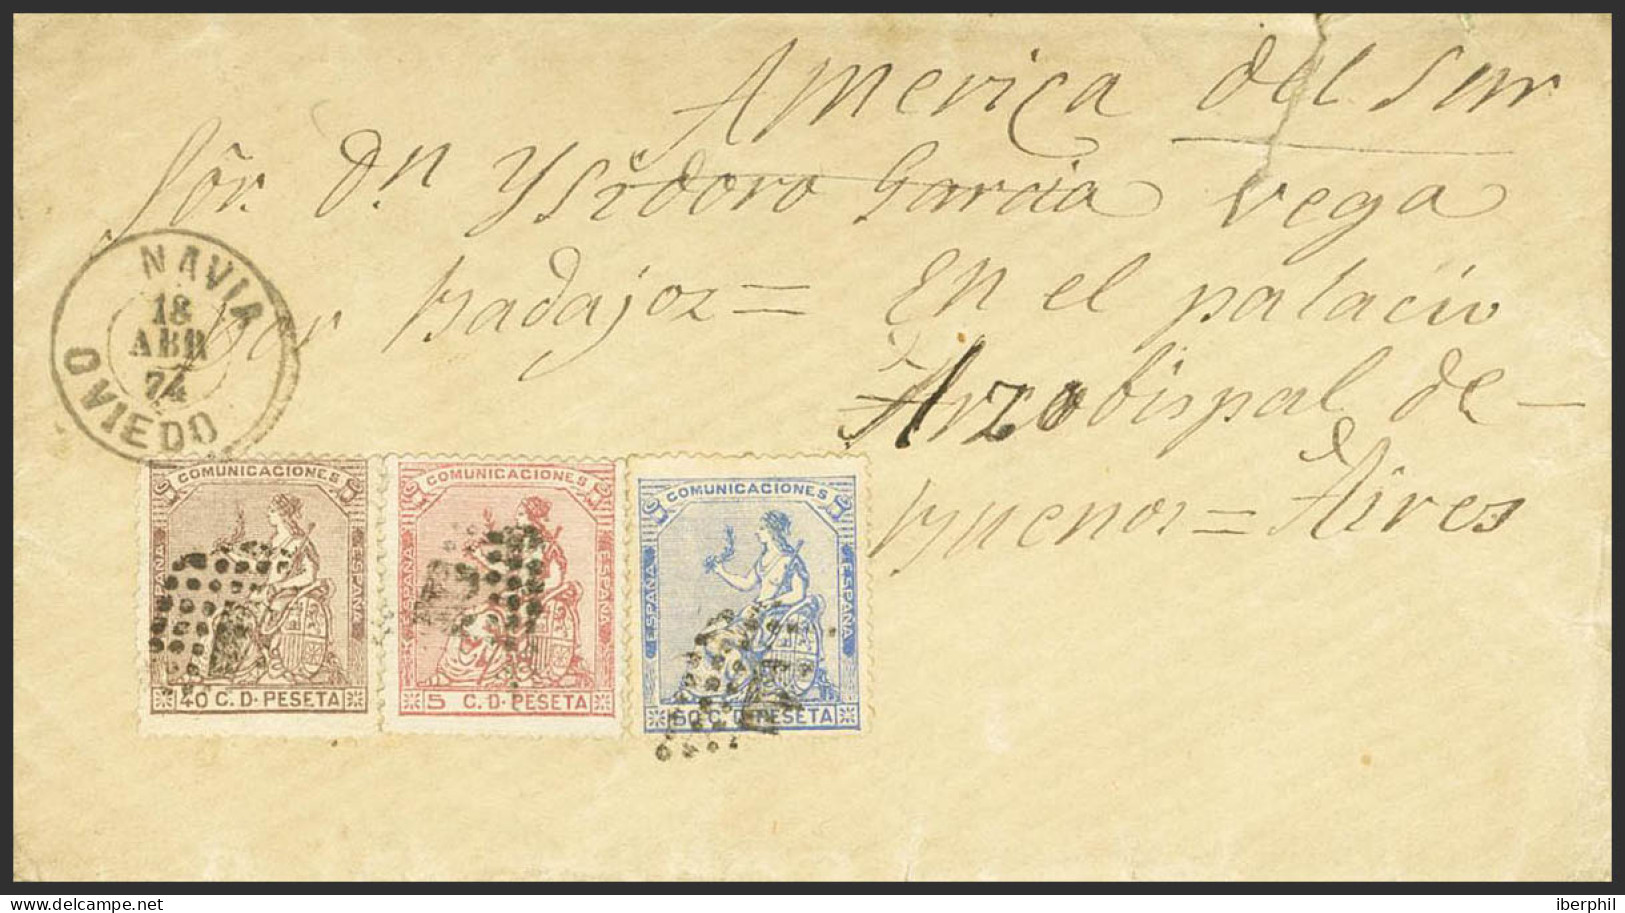 America del Sur
Sör. Dn. Ysidoro Garcia Vega
por Badajoz = En el palacio
Arzobispal de —
Buenos = Aires
NAVIA
18
ABR
74
OVIEDO
COMUNICACIONES
ESPAÑA
ESPAÑA
40 C. D. PESETA
COMUNICACIONES
ESPAÑA
ESPAÑA
5 C. D. PESETA
COMUNICACIONES
ESPAÑA
ESPAÑA
50 C. D. PESETA
iberphil